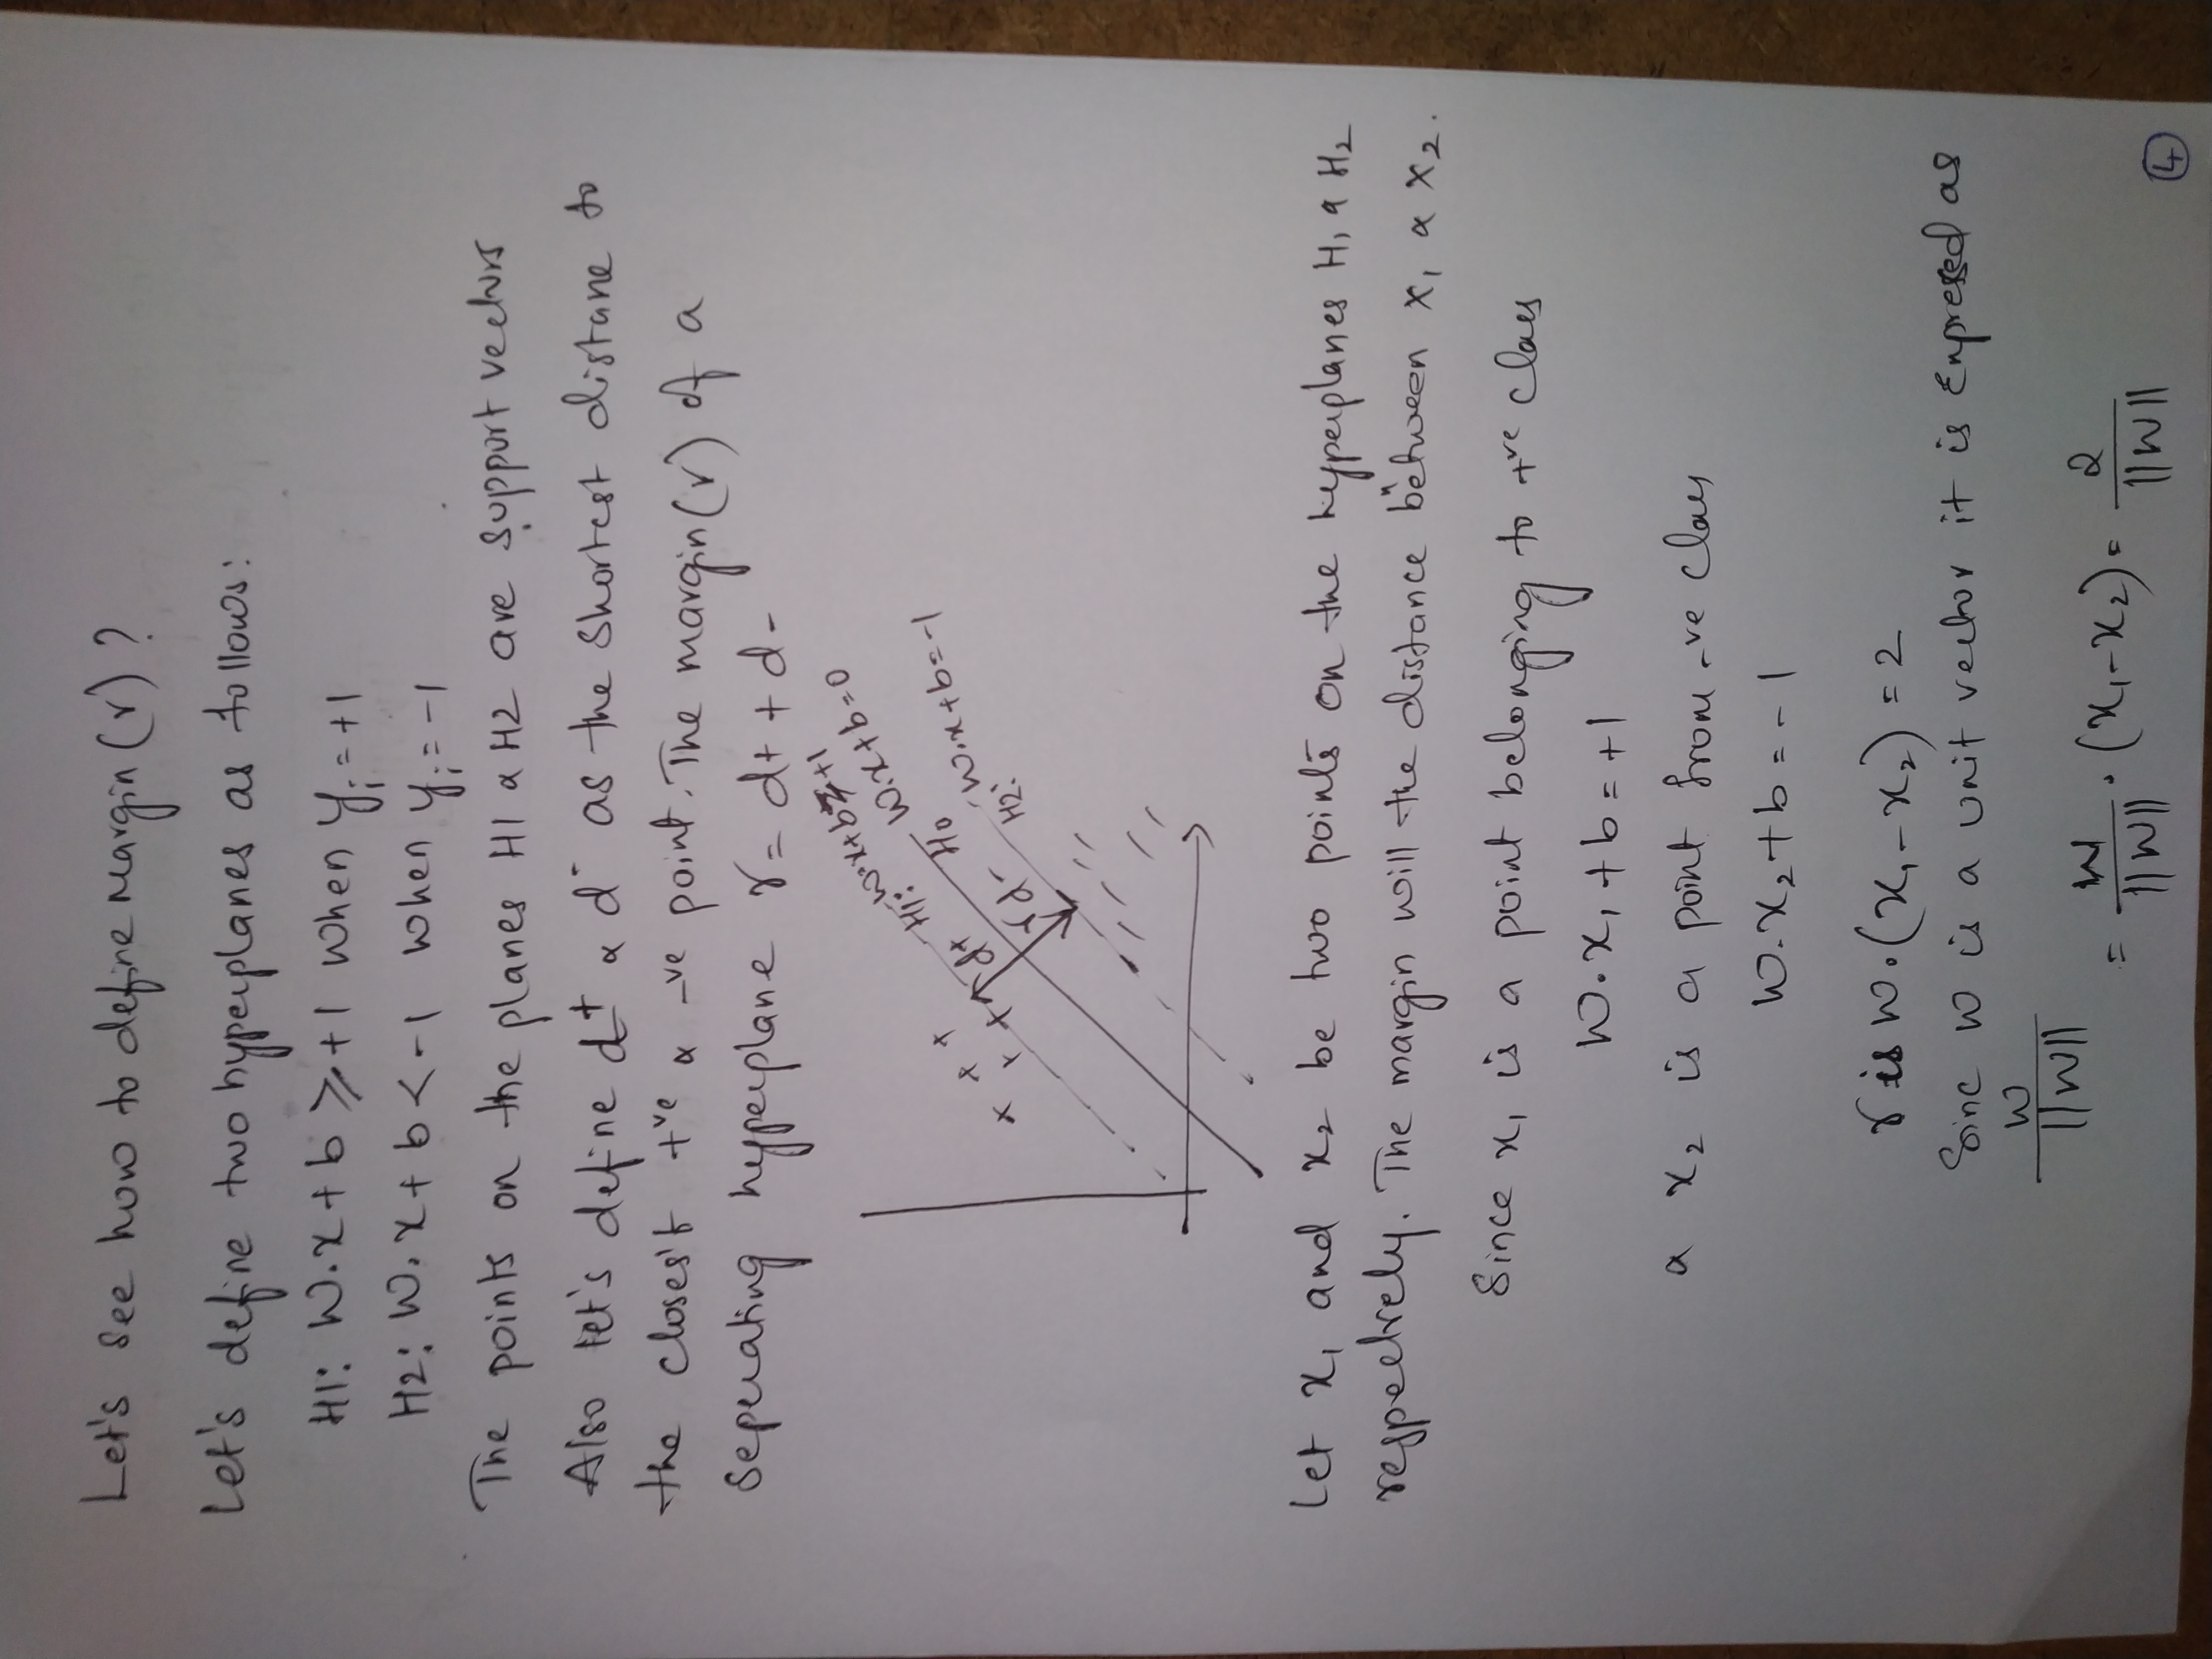 Let's see how to define margin (r) ?
Let's define two hyperplanes as follows:
H1: W.x + b ≥ +1 when yi = +1
H2: W.x + b < -1 when yi = -1
The points on the planes H1 & H2 are support vectors
Also let's define d+ & d- as the shortest distane to
the closes't +ve & -ve point. The margin (r) of a
seperating hyperplane r = d+ + d-
H1: W.x+b ≥ +1
W.x+b=0
H0
H2: W.x+b=-1
d+
r d-
Let x1 and x2 be two points on the hyperplanes H1 & H2
respectively. The margin will the distance between x1 & x2.
Since x1 is a point belonging to +ve class
W.x1 + b = +1
& x2 is a point from -ve class
W.x2 + b = -1
r is W.(x1 - x2) = 2
Sinc W is a unit vector it is Expressed as
W
||W||
= W/||W|| . (x1 - x2) = 2/||W||
4